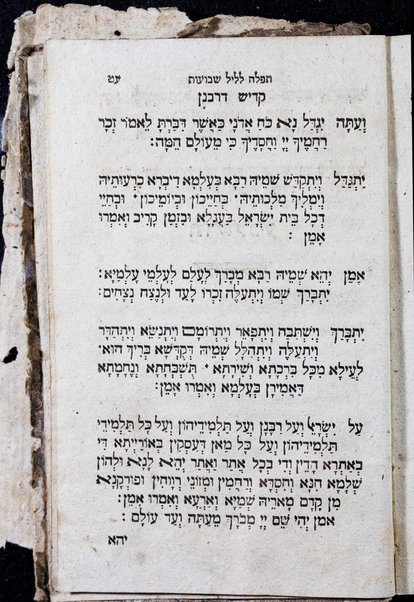 תפלה לליל שבועות עט
קדיש דרבנן
וְעַתָּה יִגְדַּל נָא כֹּחַ אֲדֹנָי כַּאֲשֶׁר דִּבַּרְתָּ לֵאמֹר זְכֹר
רַחֲמֶיךָ יְיָ וַחֲסָדֶיךָ כִּי מֵעוֹלָם הֵמָּה:
יִתְגַּדַּל וְיִתְקַדַּשׁ שְׁמֵיהּ רַבָּא בְּעָלְמָא דִּיבְרָא כִרְעוּתֵיהּ
וְיַמְלִיךְ מַלְכוּתֵיהּ · בְּחַיֵּיכוֹן וּבְיוֹמֵיכוֹן · וּבְחַיֵּי
דְכָל בֵּית יִשְׂרָאֵל בַּעֲגָלָא וּבִזְמַן קָרִיב וְאִמְרוּ
אָמֵן :
אָמֵן יְהֵא שְׁמֵיהּ רַבָּא מְבָרַךְ לְעָלַם לְעָלְמֵי עָלְמַיָּא:
יִתְבָּרַךְ שְׁמוֹ וְיִתְעַלֶּה זִכְרוֹ לָעַד וּלְנֵצַח נְצָחִים:
יִתְבָּרַךְ וְיִשְׁתַּבַּח וְיִתְפָּאַר וְיִתְרוֹמַם וְיִתְנַשֵּׂא וְיִתְהַדָּר
וְיִתְעַלֶּה וְיִתְהַלָּל שְׁמֵיהּ דְּקֻדְשָׁא בְּרִיךְ הוּא ·
לְעֵילָא מִכָּל בִּרְכָתָא וְשִׁירָתָא · תֻּשְׁבְּחָתָא וְנֶחָמָתָא
דַּאֲמִירָן בְּעָלְמָא וְאִמְרוּ אָמֵן:
עַל יִשְׂרָאֵל וְעַל רַבָּנָן וְעַל תַּלְמִידֵיהוֹן וְעַל כָּל תַּלְמִידֵי
תַלְמִידֵיהוֹן וְעַל כָּל מַאן דְּעָסְקִין בְּאוֹרַיְיתָא דִּי
בְאַתְרָא הָדֵין וְדִי בְכָל אֲתַר וַאֲתַר יְהֵא לָנָא וּלְהוֹן
שְׁלָמָא חִנָּא וְחִסְדָּא וְרַחֲמִין וּמְזוֹנֵי רְוִיחֵין וּפוּרְקָנָא
מִן קֳדָם מָארֵיהּ שְׁמַיָּא וְאַרְעָא וְאִמְרוּ אָמֵן:
אמן יְהִי שֵׁם יְיָ מְבֹרָךְ מֵעַתָּה וְעַד עוֹלָם :
יהא